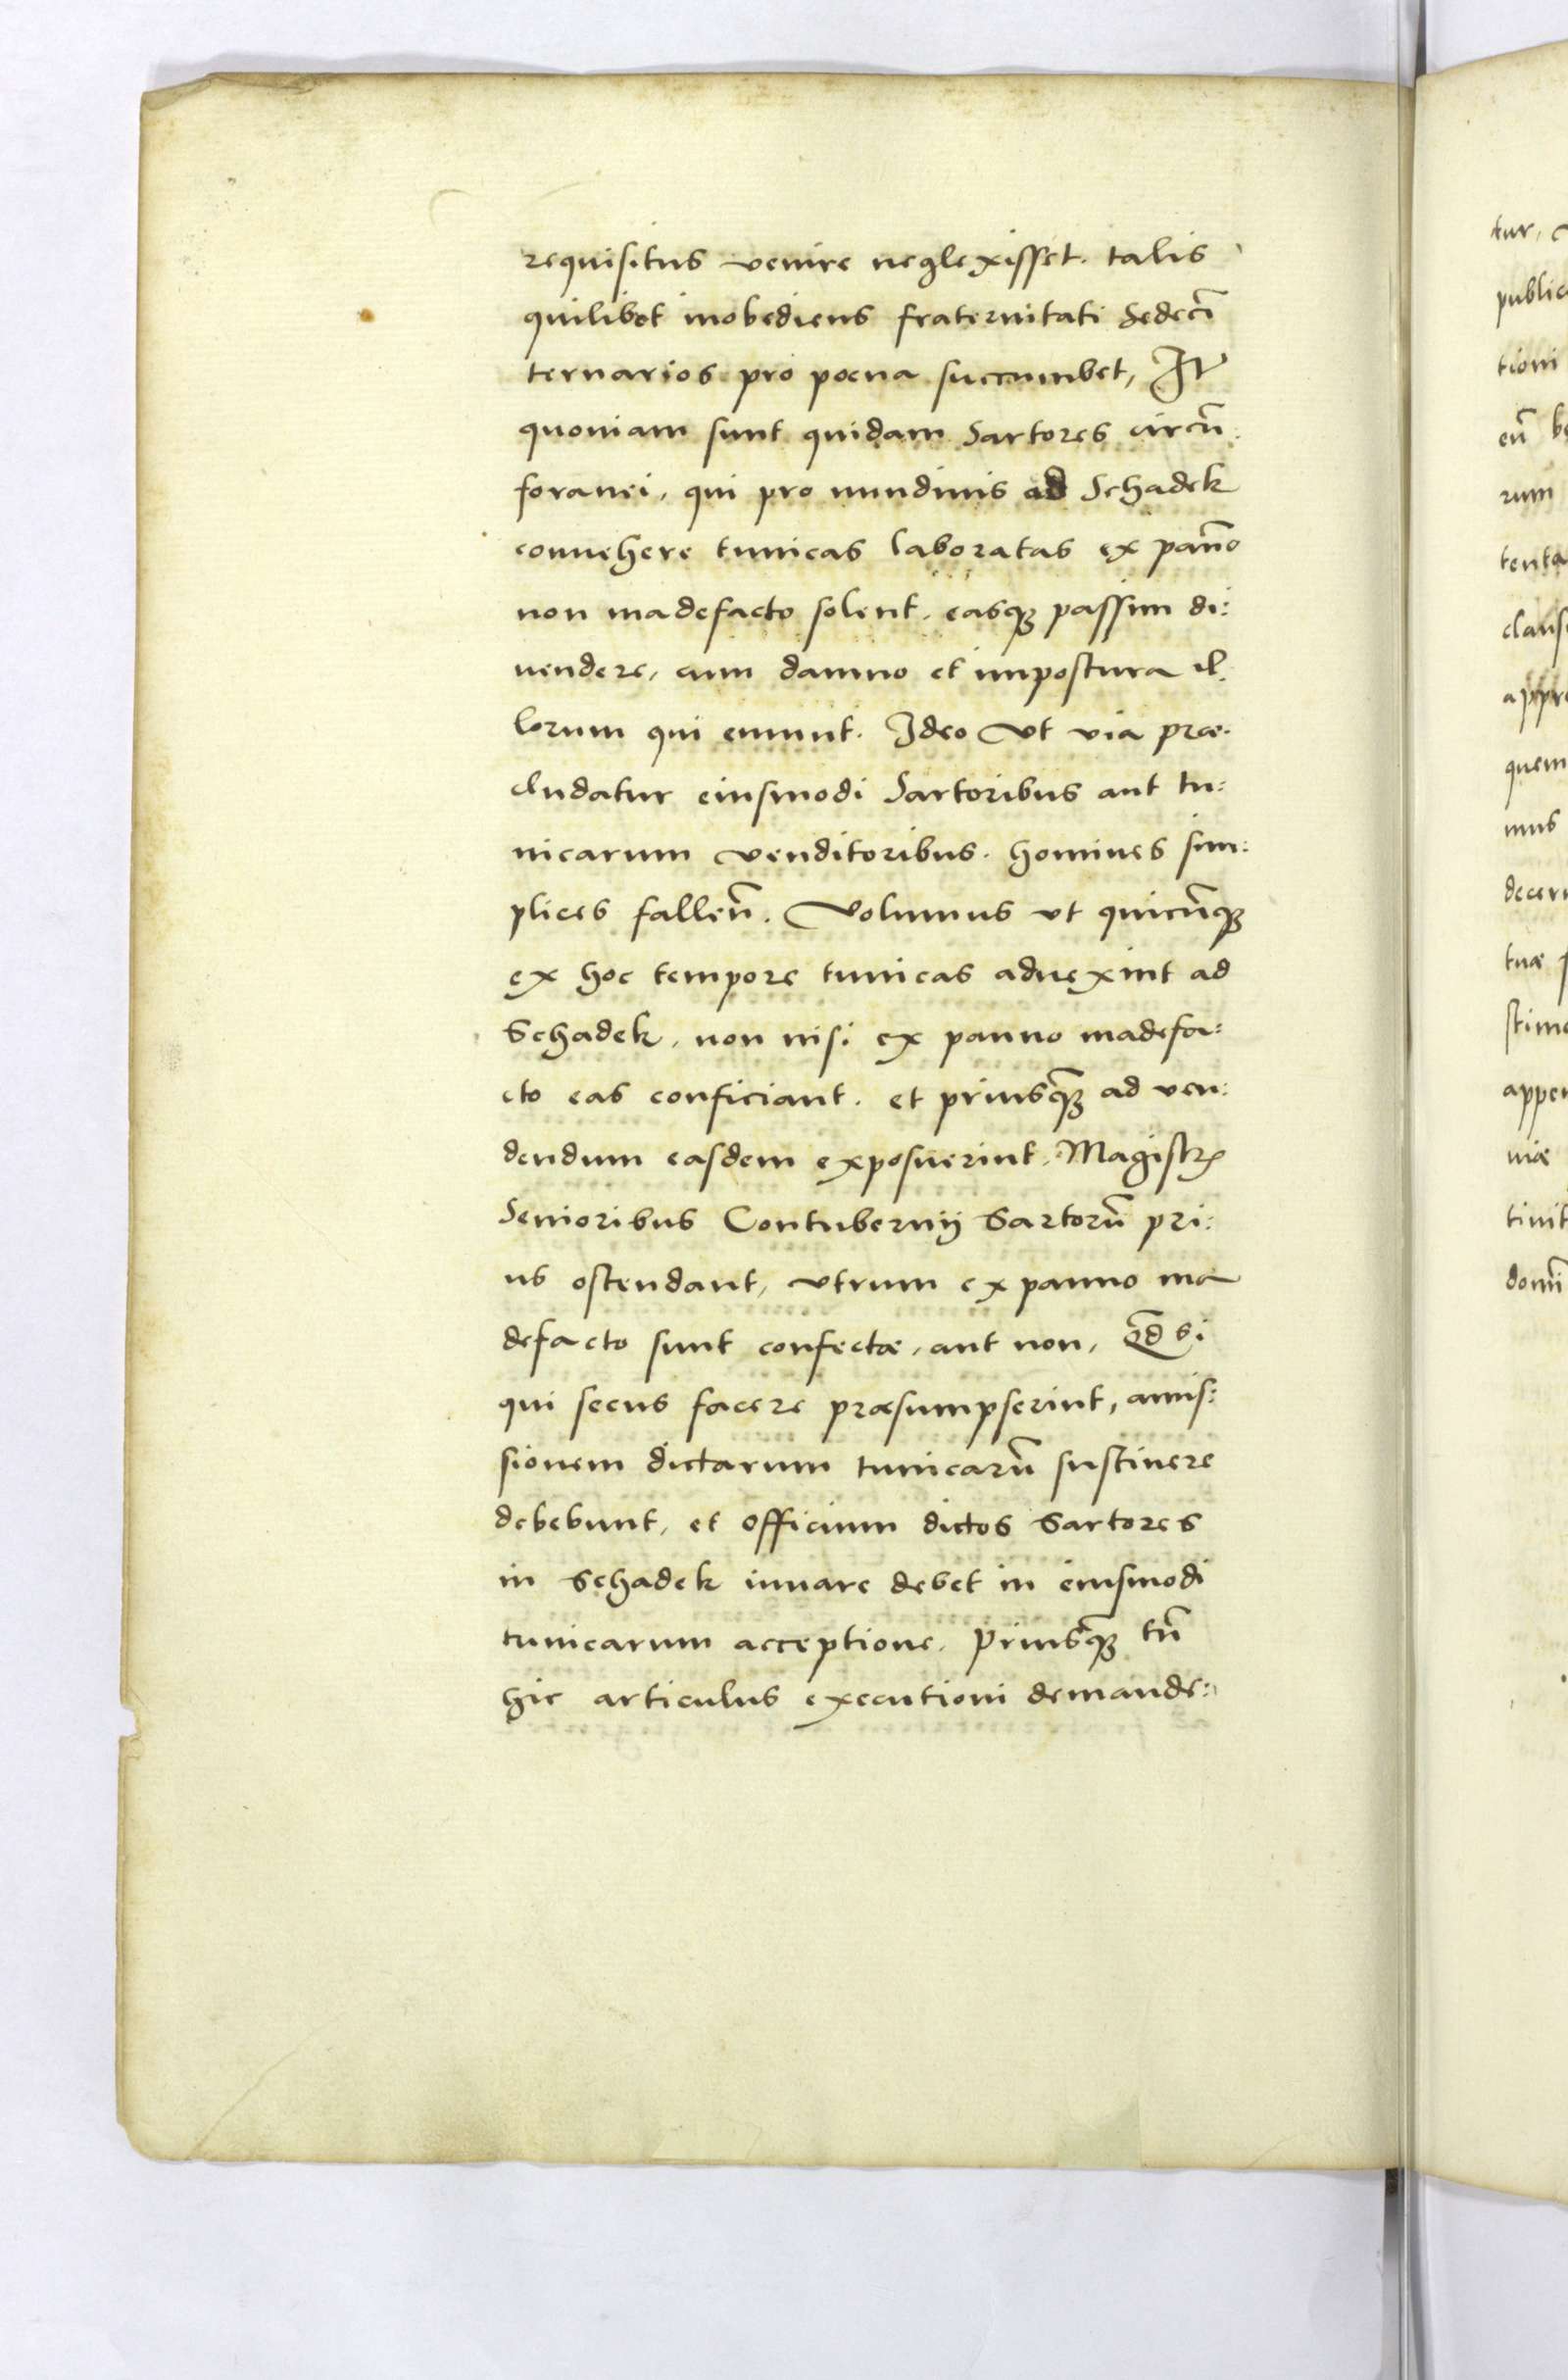 requisitus venire neglexisset. talis
quilibet inobediens fraternitati Sedeci͂
ternarios pro poena succumbet, It͂
quoniam sunt quidam Sartores circu͂.
foranei, qui pro nundinis ad Schadek
conuehere tunicas laboratas ex pan͂o
non madefacto solent. easqꝫ passim di:
uendere, cum damno et impostura il.
lorum qui emunt. Ideo Vt via præ.
cludatur eiusmodi Sartoribus aut tu:
nicarum venditoribus. homines sim:
plices fallen͂. Volumus vt quicu͂qꝫ
ex hoc tempore tunicas aduexint ad
Schadek, non nisi ex panno madefa:
cto eas conficiant. et priusq͂ꝫ ad ven:
dendum easdem exposuerint, Magistr͂
Senioribus Contubernij Sartoru͂ pri:
us ostendant, vtrum ex panno ma
defacto sunt confectæ, aut non, Q͂d si
qui secus facere præsumpserint, amis:
sionem dictarum tunicaru͂ sustinere
debebunt, et officium dictos Sartores
in Schadek iuuare debet in eiusmodi
tunicarum acceptione. Priusq͂ꝫ tn͂
hic articulus executioni demande:
tur,
public
tioni
eu͂ b
rum
tenta
claus
appro
quem
mus
decern
tuæ
stimo
appen
niæ
tinit
domi͂